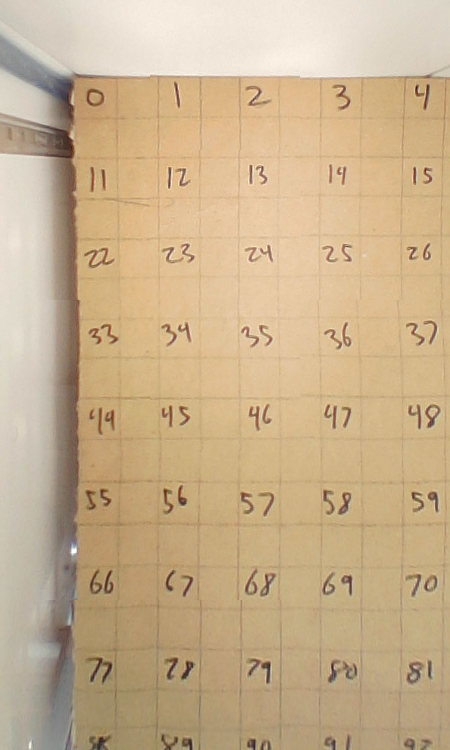 0 1 2 3 4
11 12 13 14 15
22 23 24 25 26
33 34 35 36 37
44 45 46 47 48
55 56 57 58 59
66 67 68 69 70
77 78 79 80 81
88 89 90 91 92